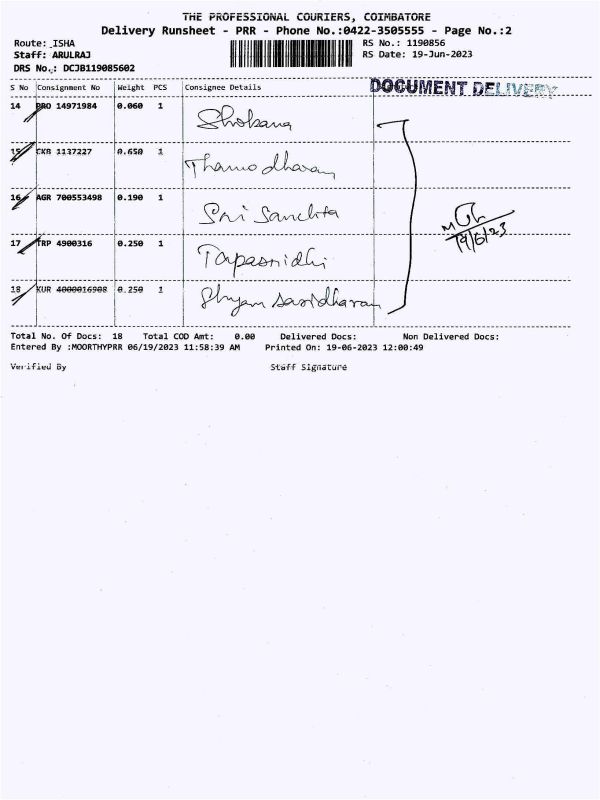 THE PROFESSIONAL COURIERS, COIMBATORE
Delivery Runsheet - PRR - Phone No.:0422-3505555 - Page No.:2
Route: ISHA RS No.: 1190856
Staff: ARULRAJ RS Date: 19-Jun-2023
DRS No.: DCJB119085602
S No Consignment No Weight PCS Consignee Details DOCUMENT DELIVERY
14 BRO 14971984 0.060 1 Shobana
15 CKB 1137227 0.650 1 Thamodharan
16 AGR 700553498 0.190 1 Sri Sanchita
17 TRP 4900316 0.250 1 Tapasnidhi
19/6/23
18 KUR 4000016908 0.250 1 Shyam Sasidharan
Total No. Of Docs: 18 Total COD Amt: 0.00 Delivered Docs: Non Delivered Docs:
Entered By :MOORTHYPRR 06/19/2023 11:58:39 AM Printed On: 19-06-2023 12:00:49
Verified By Staff Signature